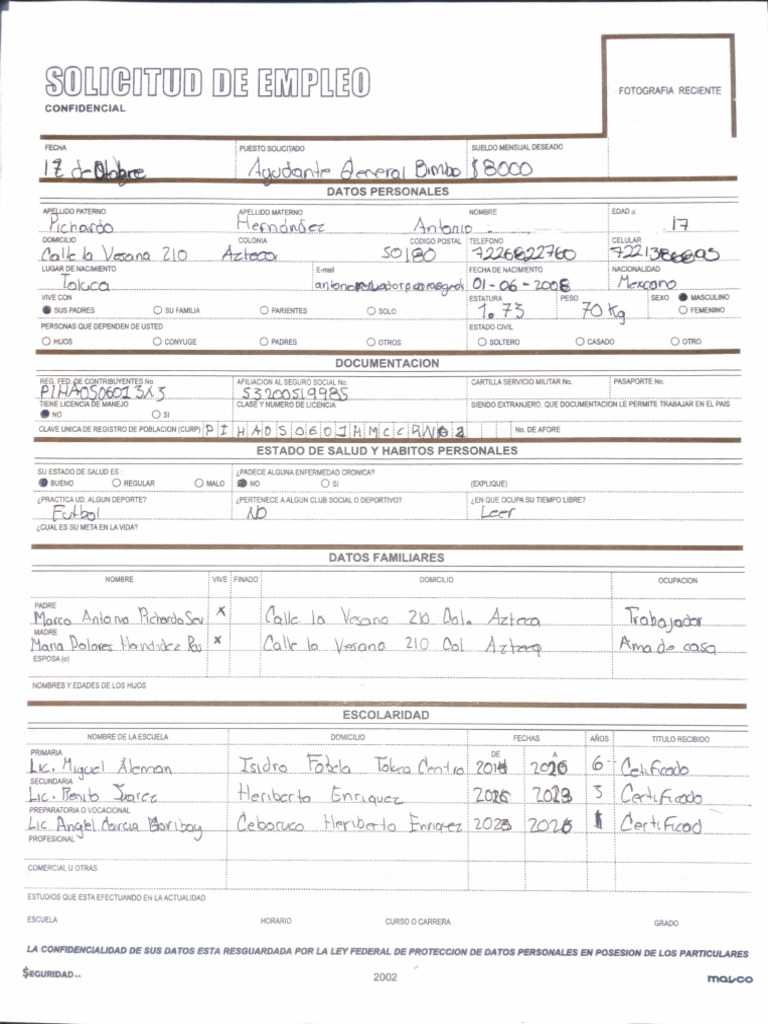 SOLICITUD DE EMPLEO
CONFIDENCIAL
FOTOGRAFIA RECIENTE
FECHA PUESTO SOLICITADO SUELDO MENSUAL DESEADO
17 de Octubre Ayudante General Bimbo $8000
DATOS PERSONALES
APELLIDO PATERNO APELLIDO MATERNO NOMBRE EDAD
Pichardo Hernández Antonio 17
DOMICILIO COLONIA CODIGO POSTAL TELEFONO CELULAR
Calle la Vesana 210 Azteca 50180 7226822760
LUGAR DE NACIMIENTO E-mail FECHA DE NACIMIENTO NACIONALIDAD
Toluca 01-06-2008 Mexicano
VIVE CON ESTATURA PESO SEXO MASCULINO
SUS PADRES SU FAMILIA PARIENTES SOLO 1.73 70 Kg FEMENINO
PERSONAS QUE DEPENDEN DE USTED ESTADO CIVIL
HIJOS CONYUGE PADRES OTROS SOLTERO CASADO OTRO
DOCUMENTACION
REG. FED. DE CONTRIBUYENTES No. AFILIACION AL SEGURO SOCIAL No. CARTILLA SERVICIO MILITAR No. PASAPORTE No.
PIHA0506013X3 53200519985
TIENE LICENCIA DE MANEJO CLASE Y NUMERO DE LICENCIA SIENDO EXTRANJERO, QUE DOCUMENTACION LE PERMITE TRABAJAR EN EL PAIS
NO SI
CLAVE UNICA DE REGISTRO DE POBLACION (CURP) PIHA050601HMCCRN02 No. DE AFORE
ESTADO DE SALUD Y HABITOS PERSONALES
SU ESTADO DE SALUD ES : ¿PADECE ALGUNA ENFERMEDAD CRONICA?
BUENO REGULAR MALO NO SI (EXPLIQUE)
¿PRACTICA UD. ALGUN DEPORTE? ¿PERTENECE A ALGUN CLUB SOCIAL O DEPORTIVO? ¿EN QUE OCUPA SU TIEMPO LIBRE?
Futbol NO Leer
¿CUAL ES SU META EN LA VIDA?
DATOS FAMILIARES
NOMBRE VIVE FINADO DOMICILIO OCUPACION
PADRE
Marco Antonio Pichardo x Calle la Vesana 210 Col. Azteca Trabajador
MADRE
Maria Dolores Hernández x Calle la Vesana 210 Col Azteca Ama de casa
ESPOSA (o)
NOMBRES Y EDADES DE LOS HIJOS
ESCOLARIDAD
NOMBRE DE LA ESCUELA DOMICILIO FECHAS AÑOS TITULO RECIBIDO
PRIMARIA DE A
Lic. Miguel Aleman Isidro Fabela Toluca Centro 6 Cetificado
SECUNDARIA
Lic. Benito Juarez Heriberto Enriquez 2023 3 Certificado
PREPARATORIA O VOCACIONAL
Lic Angel Garcia Heriberto Enriquez 2023 Certificad
PROFESIONAL
COMERCIAL U OTRAS
ESTUDIOS QUE ESTA EFECTUANDO EN LA ACTUALIDAD
ESCUELA HORARIO CURSO O CARRERA GRADO
LA CONFIDENCIALIDAD DE SUS DATOS ESTA RESGUARDADA POR LA LEY FEDERAL DE PROTECCION DE DATOS PERSONALES EN POSESION DE LOS PARTICULARES
$EGURIDAD 2002 malco